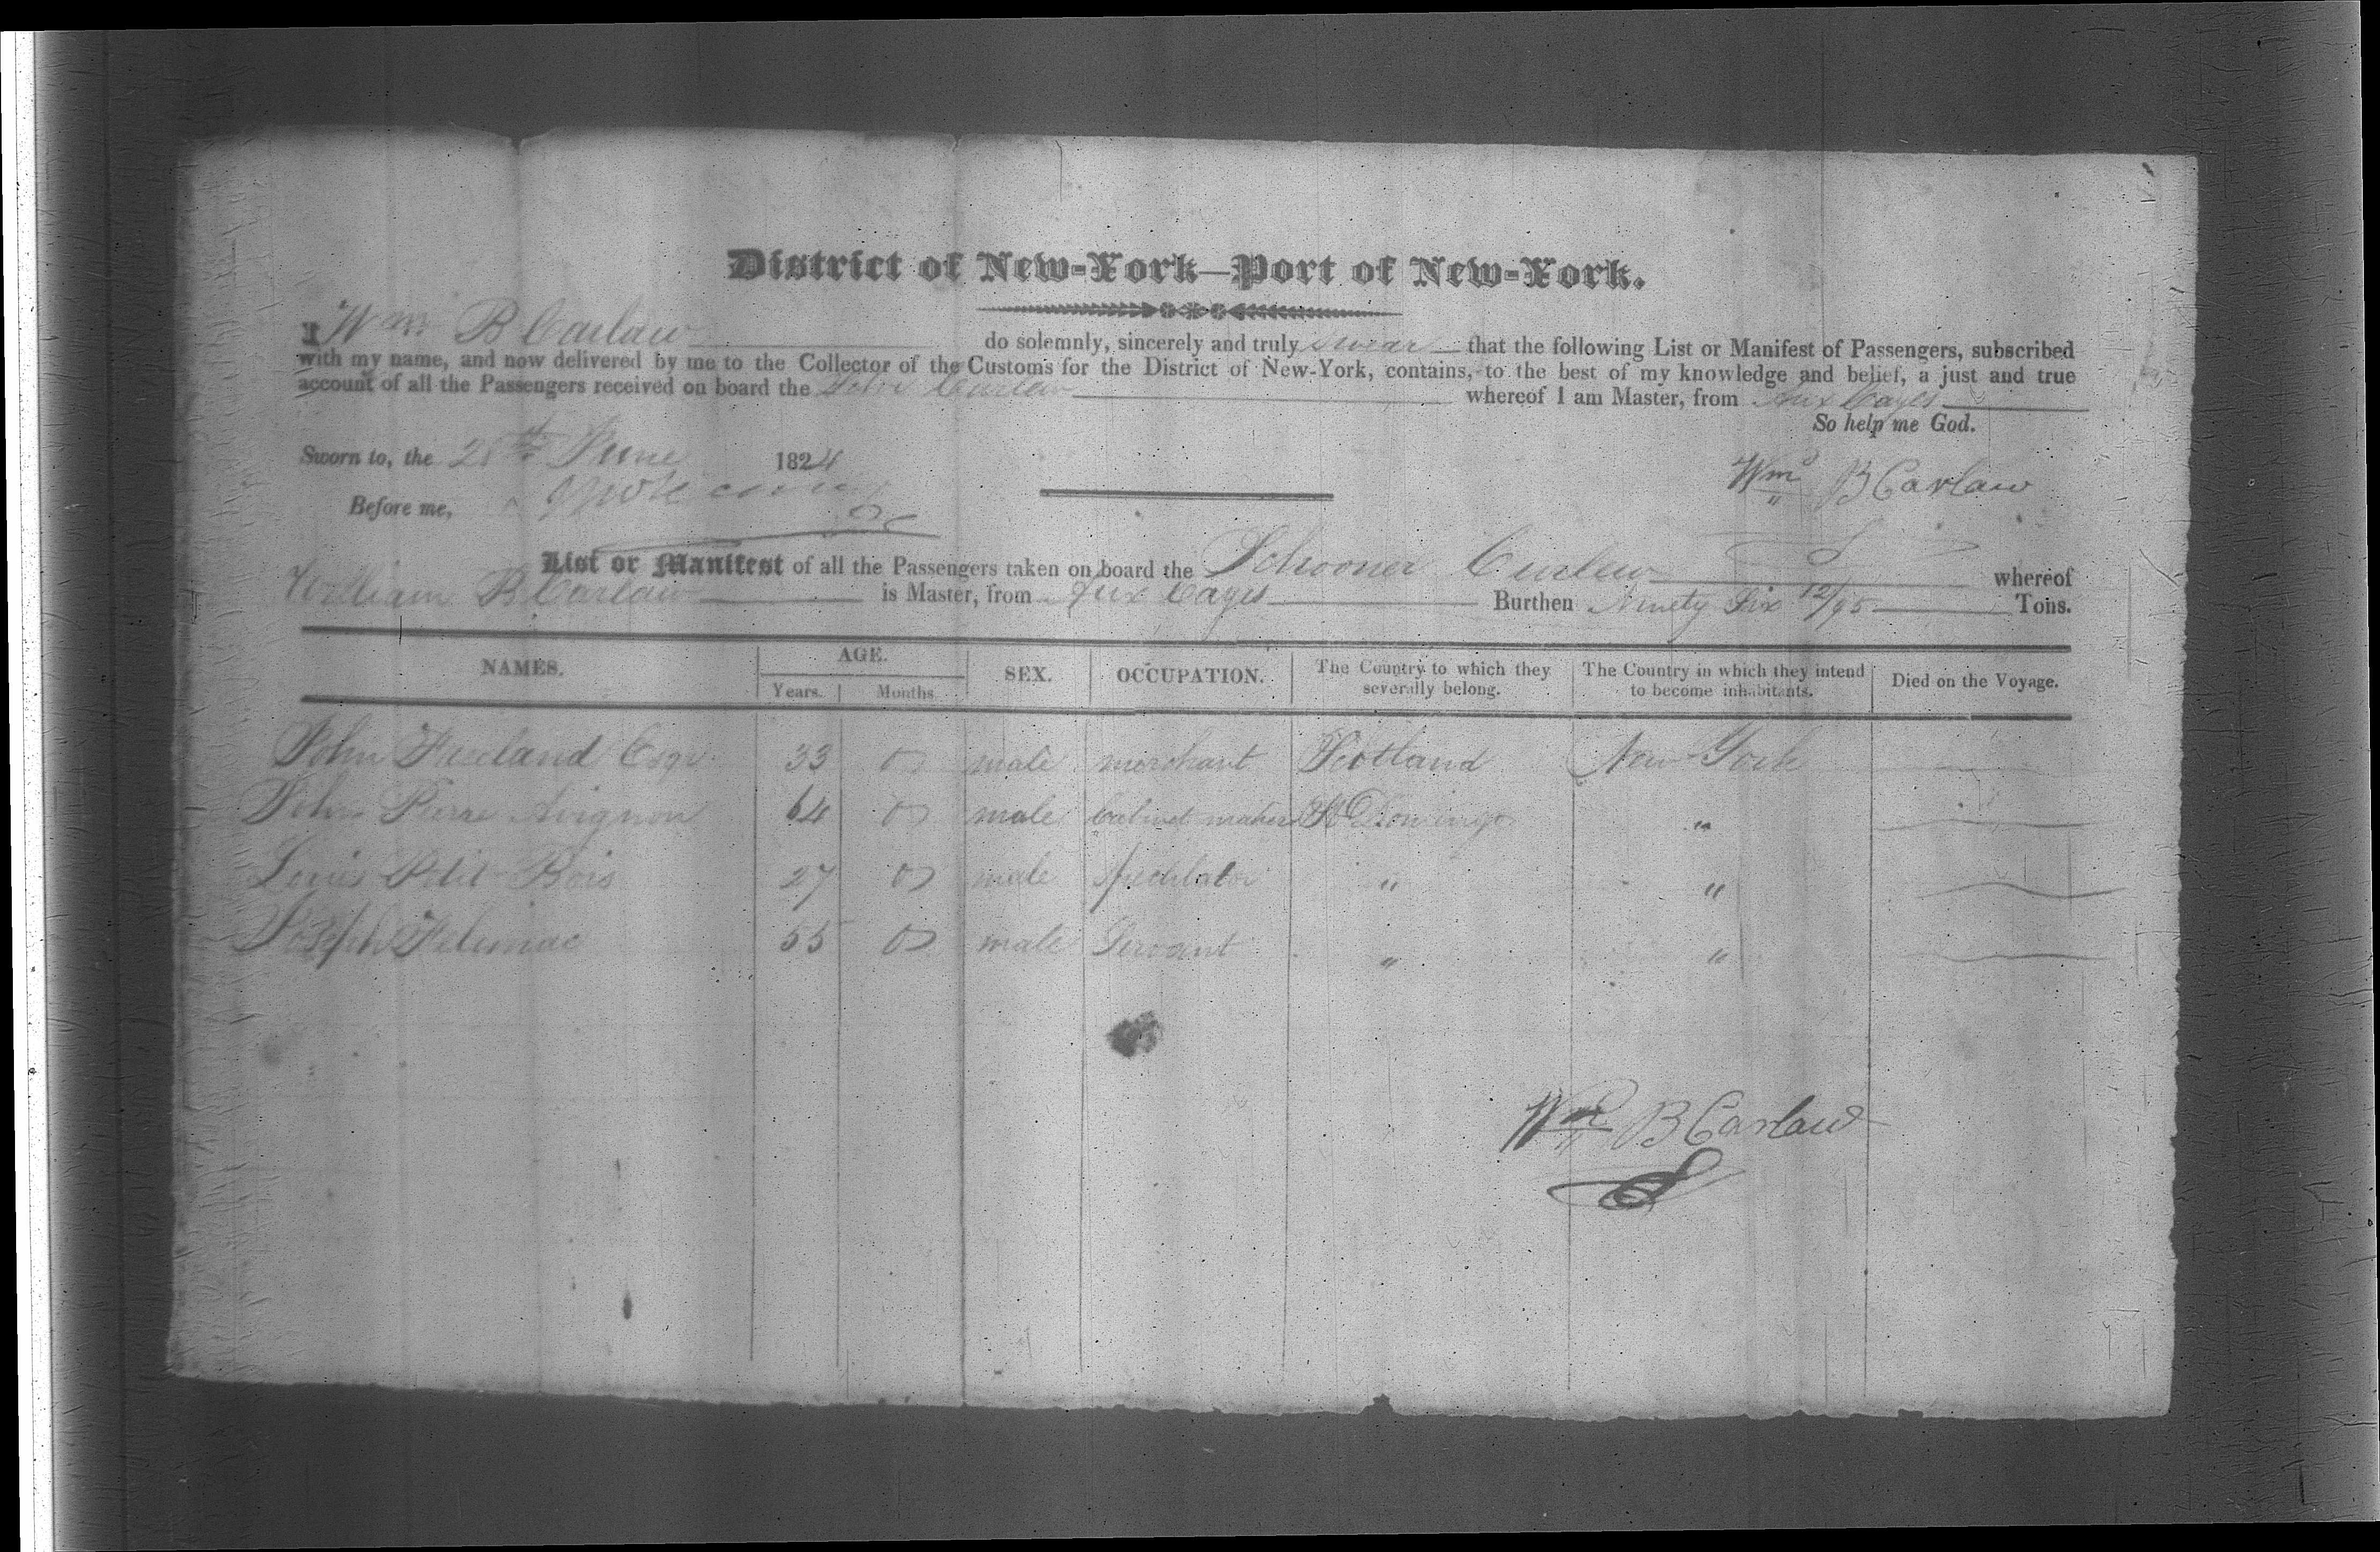 District of New-York—Port of New-York.
I Wm B Carlaw do solemnly, sincerely and truly swear that the following List or Manifest of Passengers, subscribed
with my name, and now delivered by me to the Collector of the Customs for the District of New-York, contains, to the best of my knowledge and belief, a just and true
account of all the Passengers received on board the Schr Curlew whereof I am Master, from Aux Cayes
So help me God.
Sworn to, the June 1824
Wm B Carlaw
Before me,
List or Manifest of all the Passengers taken on board the Schooner Curlew whereof
William B Carlaw is Master, from Aux Cayes Burthen Ninety Six 12/95 Tons.
NAMES. AGE. SEX. OCCUPATION. The Country to which they severally belong. The Country in which they intend to become inhabitants. Died on the Voyage.
Years. Months.
John Freeland Esqr 33 0 male merchant Scotland New York
John Pierre Avignon 64 0 male Cabinet maker St Domingo "
Louis Petit Bois 27 0 male Speculator " "
Joseph 55 0 male Servant " "
Wm B Carlaw